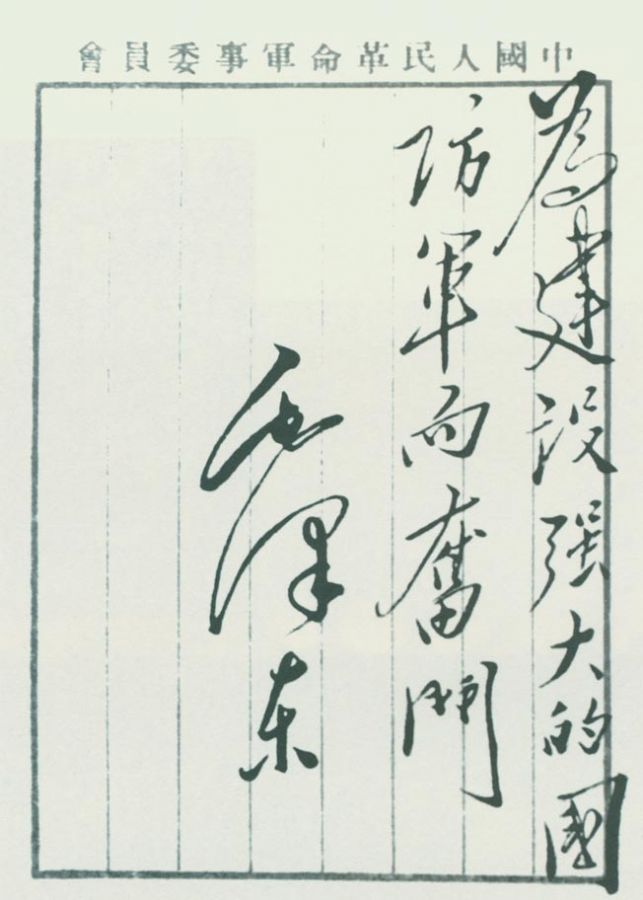 中國人民革命軍事委員會
為建設强大的國
防軍而奮鬥
毛澤东